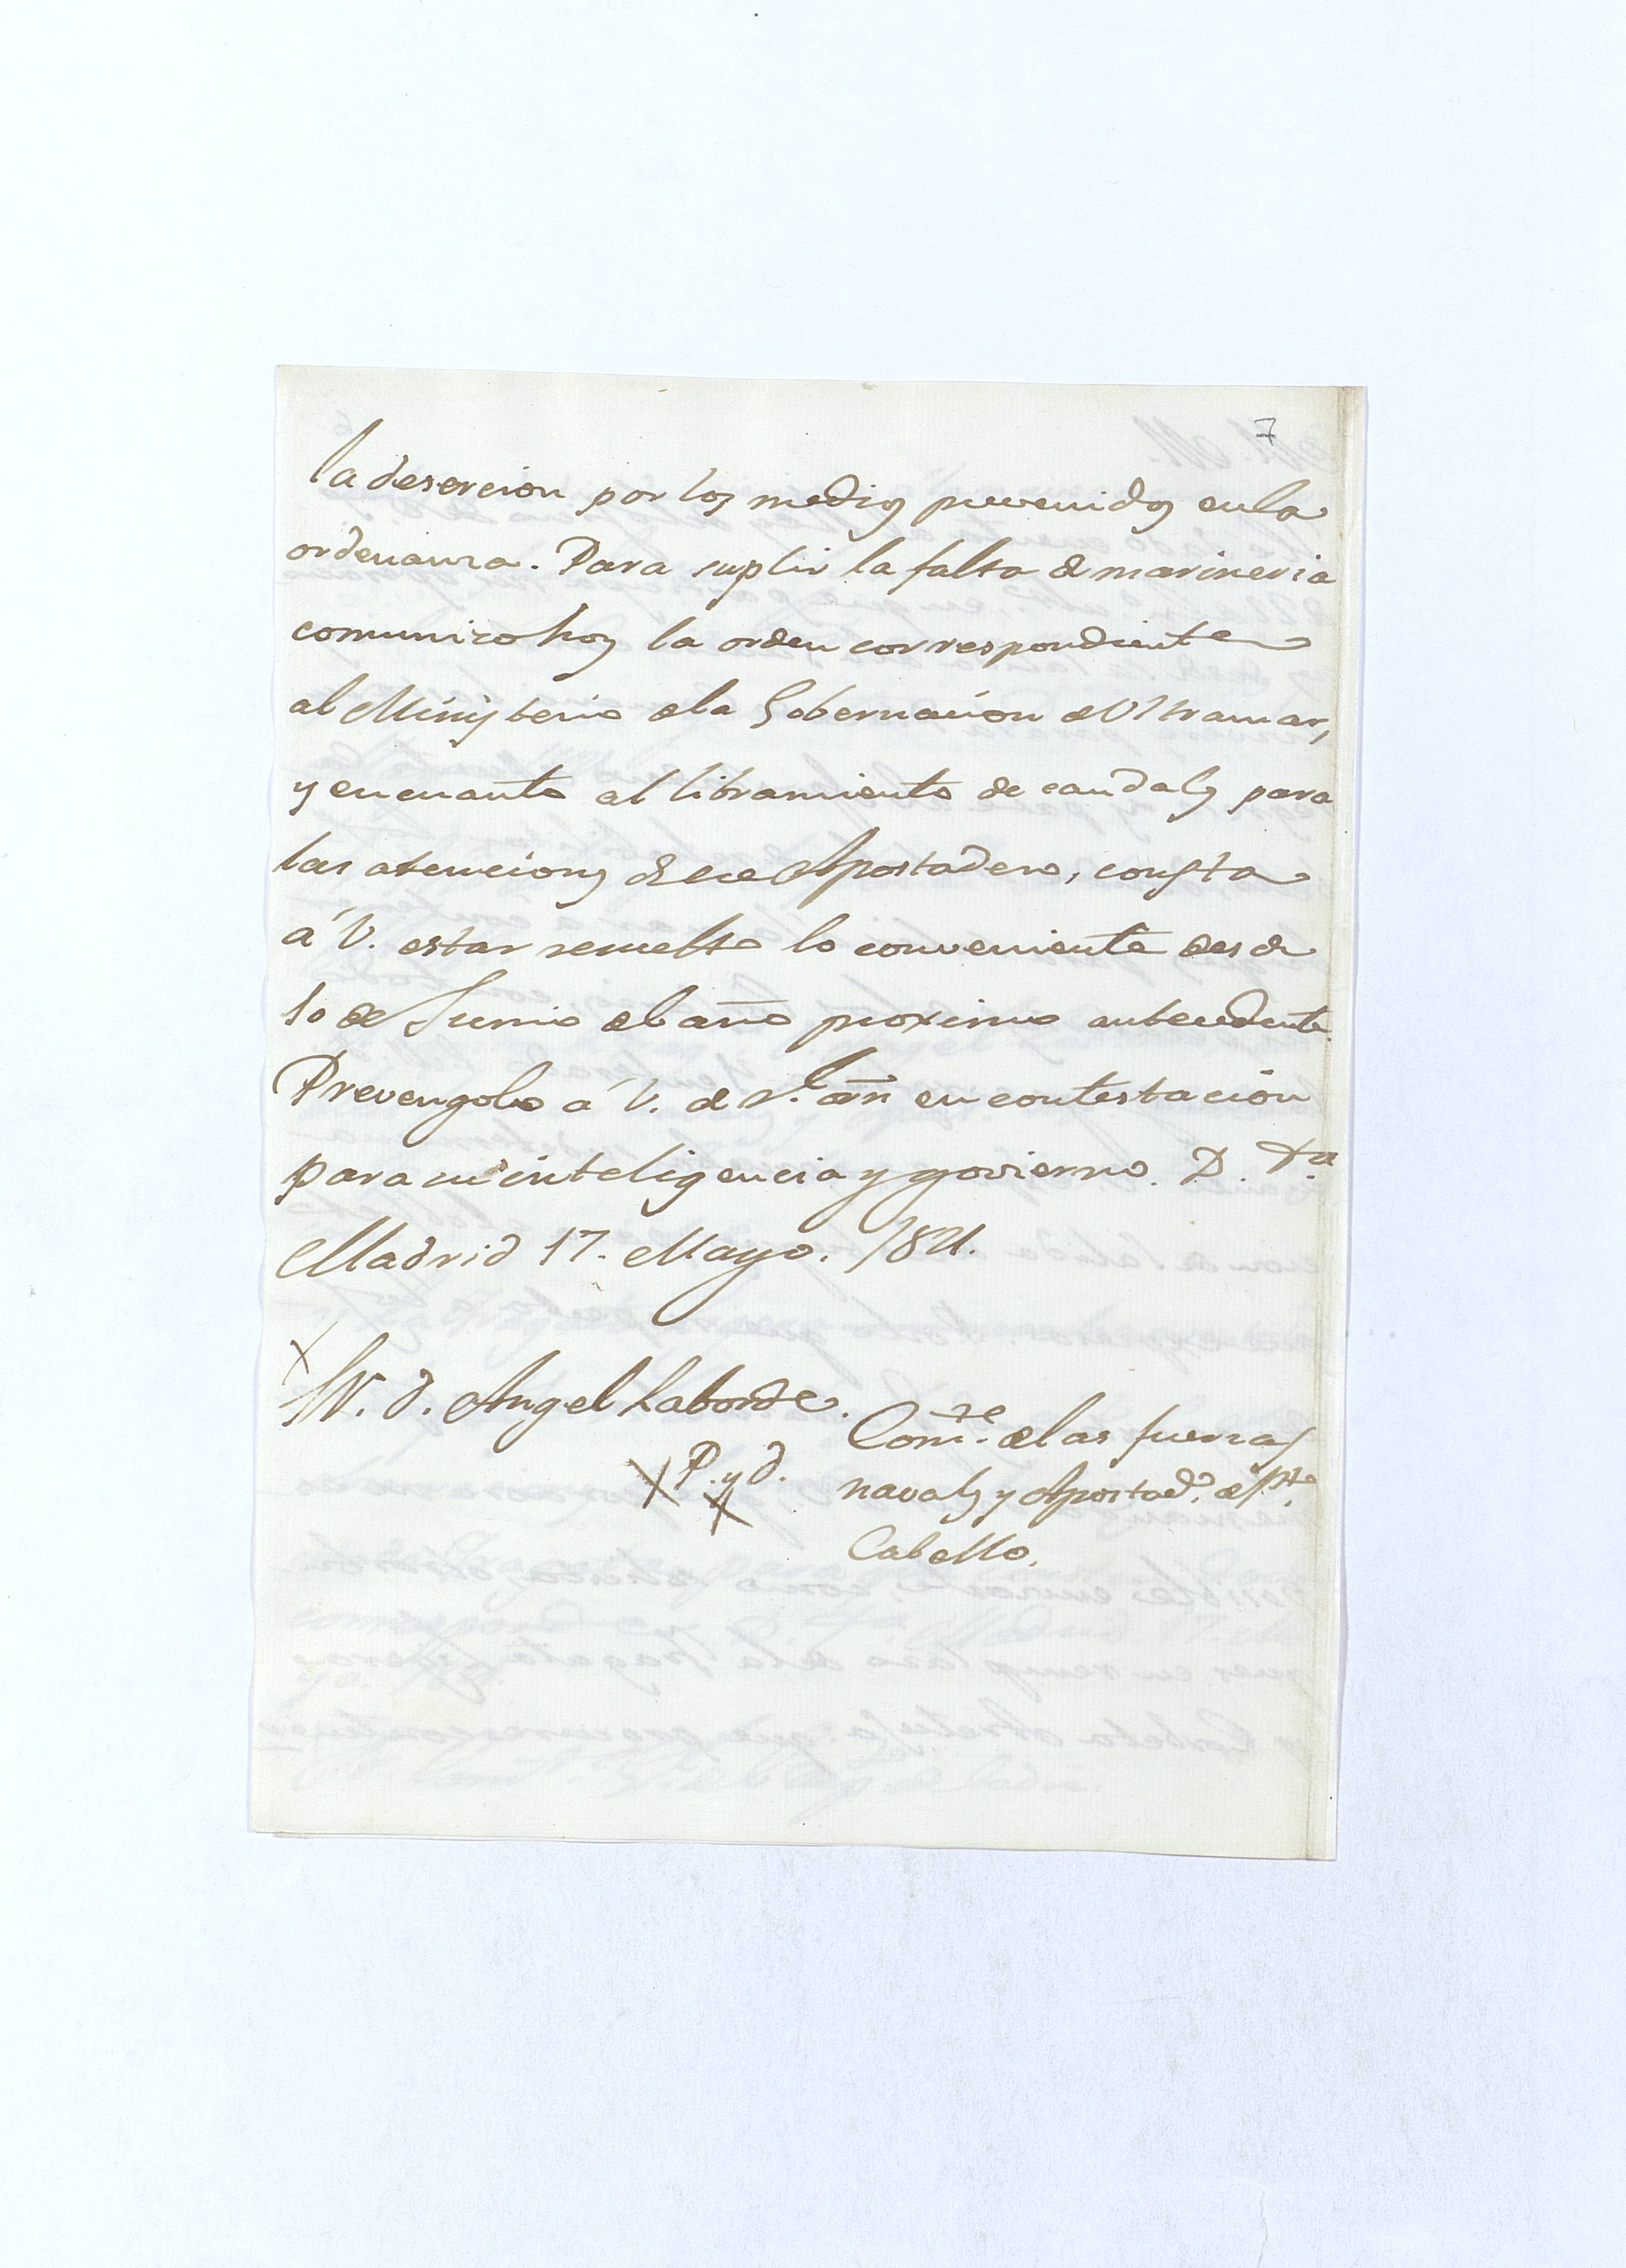 7
la desercion por los medios prevenidos en la
ordenanza. Para suplir la falta de marineria
comunico hoy la orden correspondiente
al Ministerio de la Gobernacion de Ultramar,
y en cuanto al libramiento de caudales para
las atenciones de ese Apostadero, consta
á V. estar resuelto lo conveniente desde
10 de Junio del año proximo antecedente.
Prevengolo á V. de Rl. orn en contestacion
para su inteligencia y govierno. D. Ta.
Madrid 17. Mayo. 1821.
Sr. D. Angel Laborde.
Comte. de las fuerzas
P. y D.
navales y Apostado. de Pto.
Cabello.